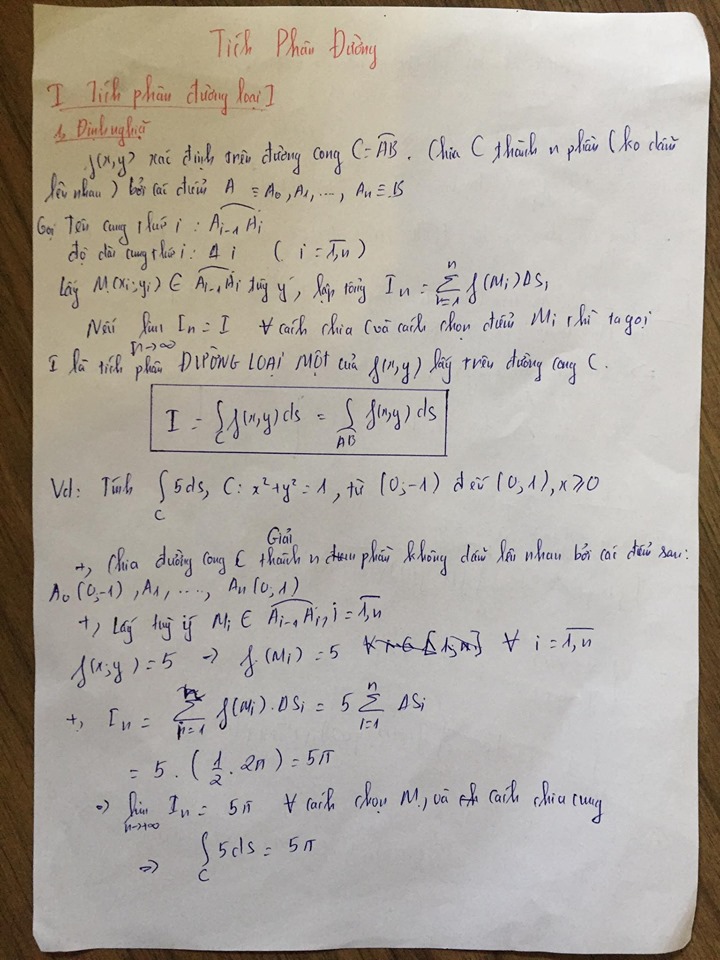 Tích Phân Đường
I Tích phân đường loại I
1, Định nghĩa
f(x,y) xác định trên đường cong C=A͡B. Chia C thành n phần (ko dẫm
lên nhau) bởi các điểm A ≡A₀,A₁,...,Aₙ≡B
Gọi tên cung thứ i: A͡ᵢ₋₁Aᵢ
độ dài cung thứ i: Δ i ( i=1,n̅)
Lấy Mᵢ(xᵢ;yᵢ) ∈ A͡ᵢ₋₁Aᵢ tùy ý, lập tổng Iₙ = ∑ⁿᵢ₌₁ f(Mᵢ)ΔSᵢ
Nếu lim Iₙ = I ∀ cách chia (và cách chọn điểm Mᵢ thì ta gọi
n→∞
I là tích phân ĐƯỜNG LOẠI MỘT của f(x,y) lấy trên đường cong C.
I = ∫_C f(x,y) ds = ∫_A͡B f(x,y) ds
Vd: Tính ∫_C 5ds, C: x²+y²=1, từ (0;-1) đến (0,1), x⩾0
Giải
+, Chia đường cong C thành n phần không dẫm lên nhau bởi các điểm sau:
A₀(0;-1), A₁, ...., Aₙ(0,1)
+, Lấy tuỳ ý Mᵢ ∈ A͡ᵢ₋₁Aᵢ, i=1,n̅
f(x;y)=5 ⇒ f(Mᵢ)=5 ∀ i=1,n̅
+, Iₙ = ∑ⁿᵢ₌₁ f(Mᵢ).ΔSᵢ = 5 ∑ⁿᵢ₌₁ ΔSᵢ
= 5 . (1/2 . 2π) = 5π
⇒ lim Iₙ = 5π ∀ cách chọn Mᵢ và cách chia cung
n→+∞
⇒ ∫_C 5ds = 5π